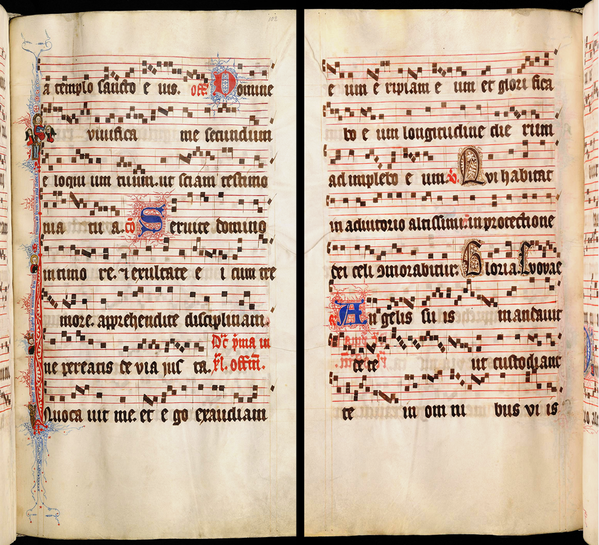 a templo sancto e ius. off Domine
vivifica me secundum
e loqui um tuum. ut sciam testimo
nia tu a. cõ Servite domino
in timo re. ⁊ exultate e i cum tre
more. apprehendite disciplinam.
ne pereatis de via jus ta.
Nvoca vit me. et e go exaudiam
e um e ripiam e um et glori fica
bo e um longitudine die rum
ad implebo e um. Qui habitat
in adiutorio altissimi: in protectione
dei celi comorabitur. Gloria
Angelis su is mandavit
de te ut custodiant
te in om ni bus vi is